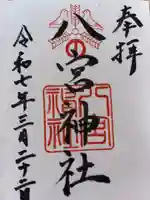 奉拝
八宮神社
令和七年三月二十二日